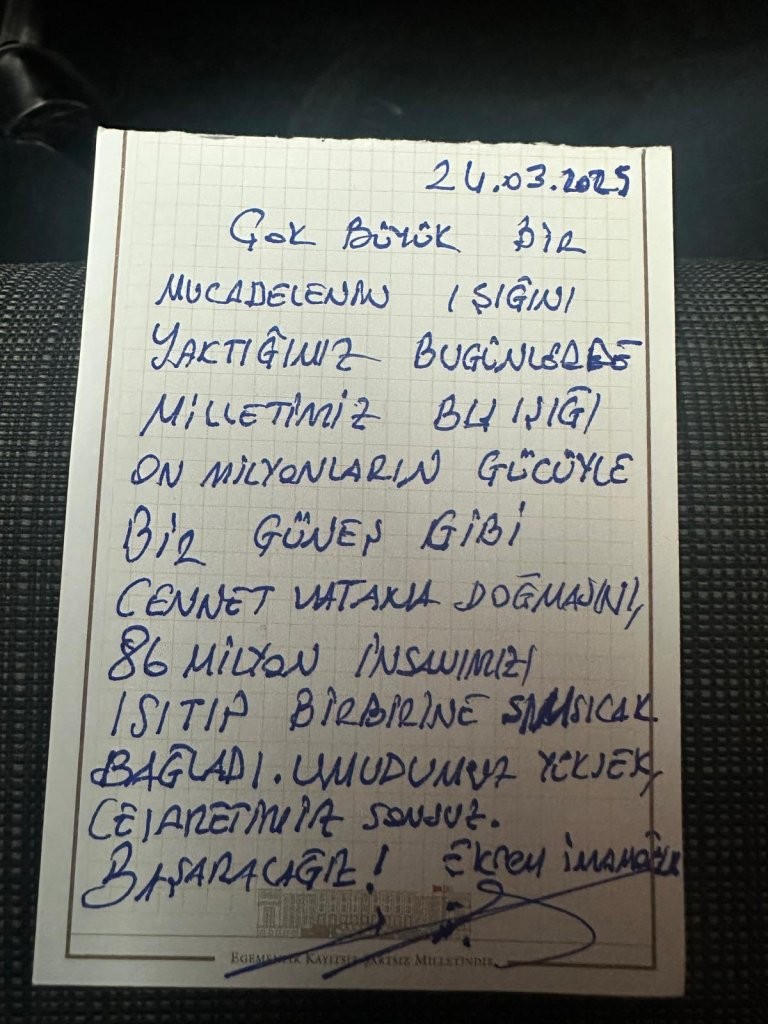 24.03.2025
ÇOK BÜYÜK BİR
MUCADELENİN IŞIĞINI
YAKTIĞIMIZ BUGÜNLERDE
MİLLETİMİZ BU IŞIĞI
ON MİLYONLARIN GÜCÜYLE
BİR GÜNEŞ GİBİ
CENNET VATANA DOĞMASINI,
86 MİLYON İNSANIMIZI
ISITIP BİRBİRİNE SIMSICAK
BAĞLADI. UMUDUMUZ YÜKSEK,
CESARETİMİZ SONSUZ.
BAŞARACAĞIZ! EKREM İMAMOĞLU
EGEMENLİK KAYITSIZ ŞARTSIZ MİLLETİNDİR